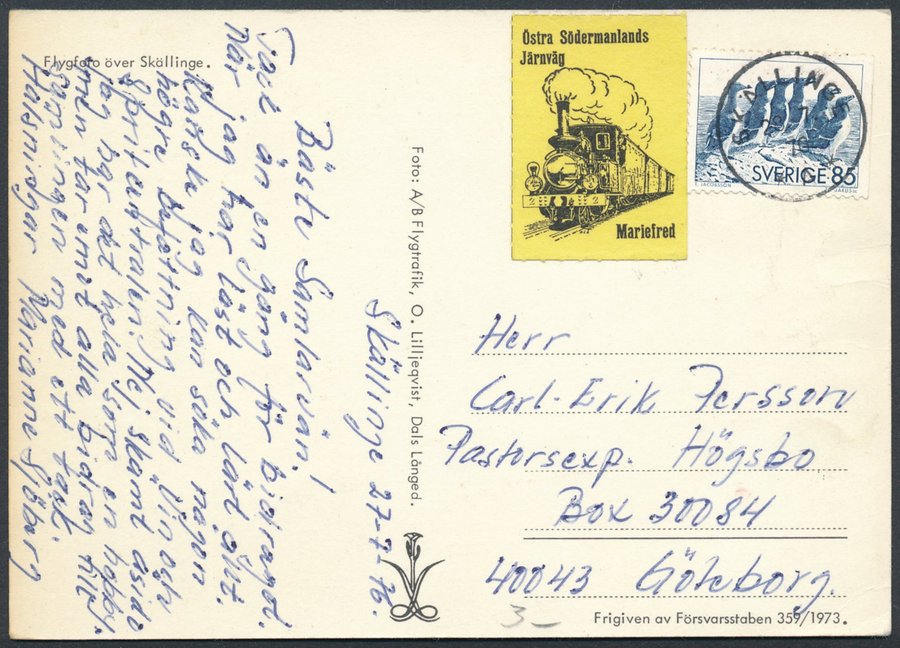 Flygfoto över Skällinge.
Skällinge 27-7-76.
Bäste Samlarvän!
Tack än en gång för bidraget.
När jag har läst och lärt ökt.
Kanske jag kan söka någon
högre befattning vid Vin och
Spritcentralen. Nej skämt åsido
jag har det hela som en hobby,
men tar emot alla bidrag till
samlingen med ett tack.
Hälsningar Marianne Sjöberg
Foto: A/B Flygtrafik, O. Lilljeqvist, Dals Långed.
Östra Södermanlands
Järnväg
Mariefred
SKÄLLINGE
SVERIGE 85
Herr
Carl-Erik Persson
Pastorsexp. Högsbo
Box 30084
40043 Göteborg.
3-
Frigiven av Försvarsstaben 359/1973.